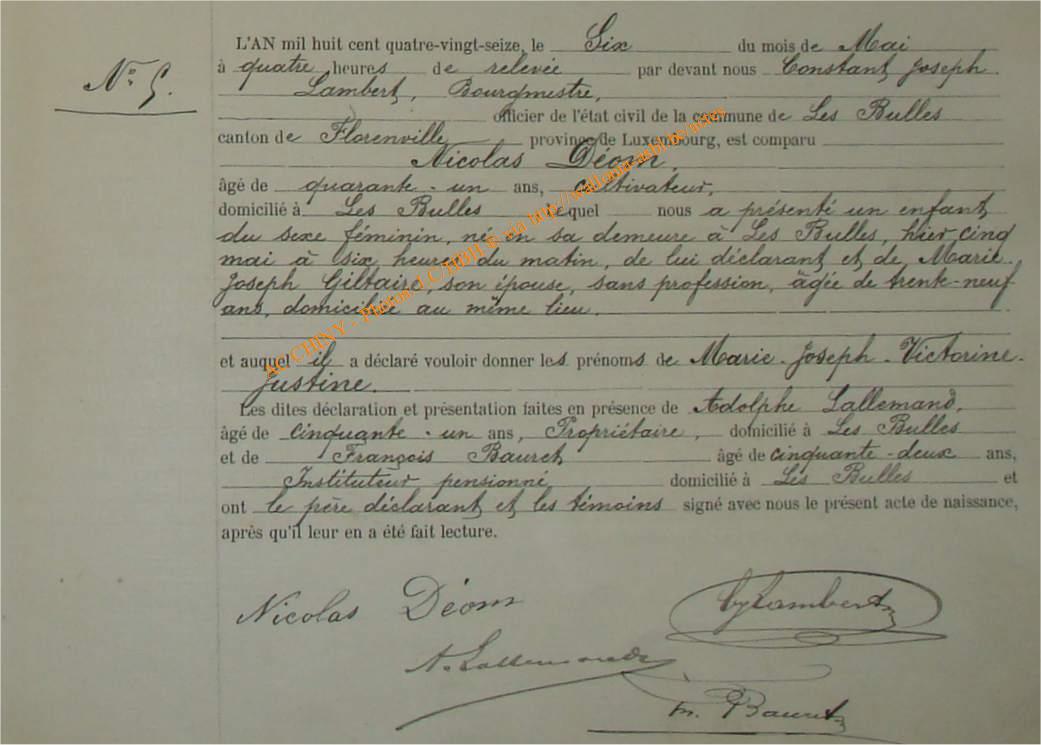 N° 5.
L'AN mil huit cent quatre-vingt-seize, le Six du mois de Mai
à quatre heures de relevée par devant nous Constant Joseph
Lambert, Bourgmestre,
officier de l'état civil de la commune de Les Bulles
canton de Florenville province de Luxembourg, est comparu
Nicolas Déom,
âgé de quarante-un ans, cultivateur,
domicilié à Les Bulles lequel nous a présenté un enfant
du sexe féminin, né en sa demeure à Les Bulles, hier cinq
mai à six heures du matin, de lui déclarant et de Marie-
Joseph Giltaire, son épouse, sans profession, âgée de trente-neuf
ans, domiciliée au même lieu.
et auquel il a déclaré vouloir donner les prénoms de Marie-Joseph-Victorine-
Justine.
Les dites déclaration et présentation faites en présence de Adolphe Lallemand,
âgé de cinquante-un ans, Propriétaire, domicilié à Les Bulles
et de François Bauret âgé de cinquante-deux ans,
Instituteur pensionné domicilié à Les Bulles et
ont le père déclarant et les témoins signé avec nous le présent acte de naissance,
après qu'il leur en a été fait lecture.
Nicolas Déom
CJLambert
A. Lallemand
Fr. Bauret
AC/CHINY - Photos J.C/HBILR via http://wallonia-asbl.be/